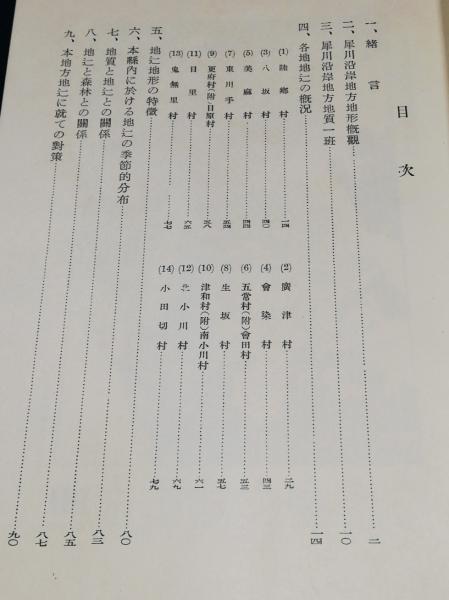 目次
一、緒言……二
二、犀川沿岸地方地形概觀……一〇
三、犀川沿岸地方地質一班……一四
四、各地地辷の槪況
(1) 陸鄕村……一四
(2) 廣津村……二九
(3) 八坂村……四〇
(4) 會染村……四三
(5) 美麻村……四四
(6) 五常村(附)會田村……五三
(7) 東川手村……五四
(8) 生坂村……五七
(9) 更府村(附)日原村……五八
(10) 津和村(附)南小川村……六一
(11) 日里村……六五
(12) 北小川村……六九
(13) 鬼無里村……七七
(14) 小田切村……七九
五、地辷地形の特徵
六、本縣內に於ける地辷の季節的分布……八〇
七、地質と地辷との關係……八三
八、地辷と森林との關係……八五
九、本地方地辷に就ての對策……八七
九〇